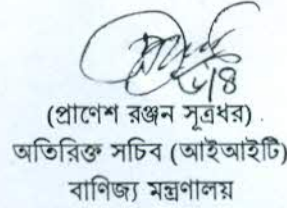 ৮/৪
(প্রাণেশ রঞ্জন সূত্রধর)
অতিরিক্ত সচিব (আইআইটি)
বাণিজ্য মন্ত্রণালয়